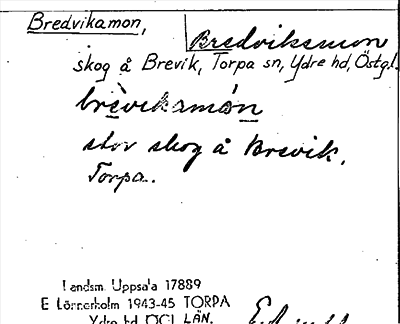 Bredvikamon,
Bredviksmon
skog å Brevik, Torpa sn, Ydre hd, Östgl.
brèviksmón
stor skog å Brevik,
Torpa.
Landsm. Uppsala 17889
E Lönnerholm 1943-45 TORPA
Ydre hd ÖGL. LÄN.